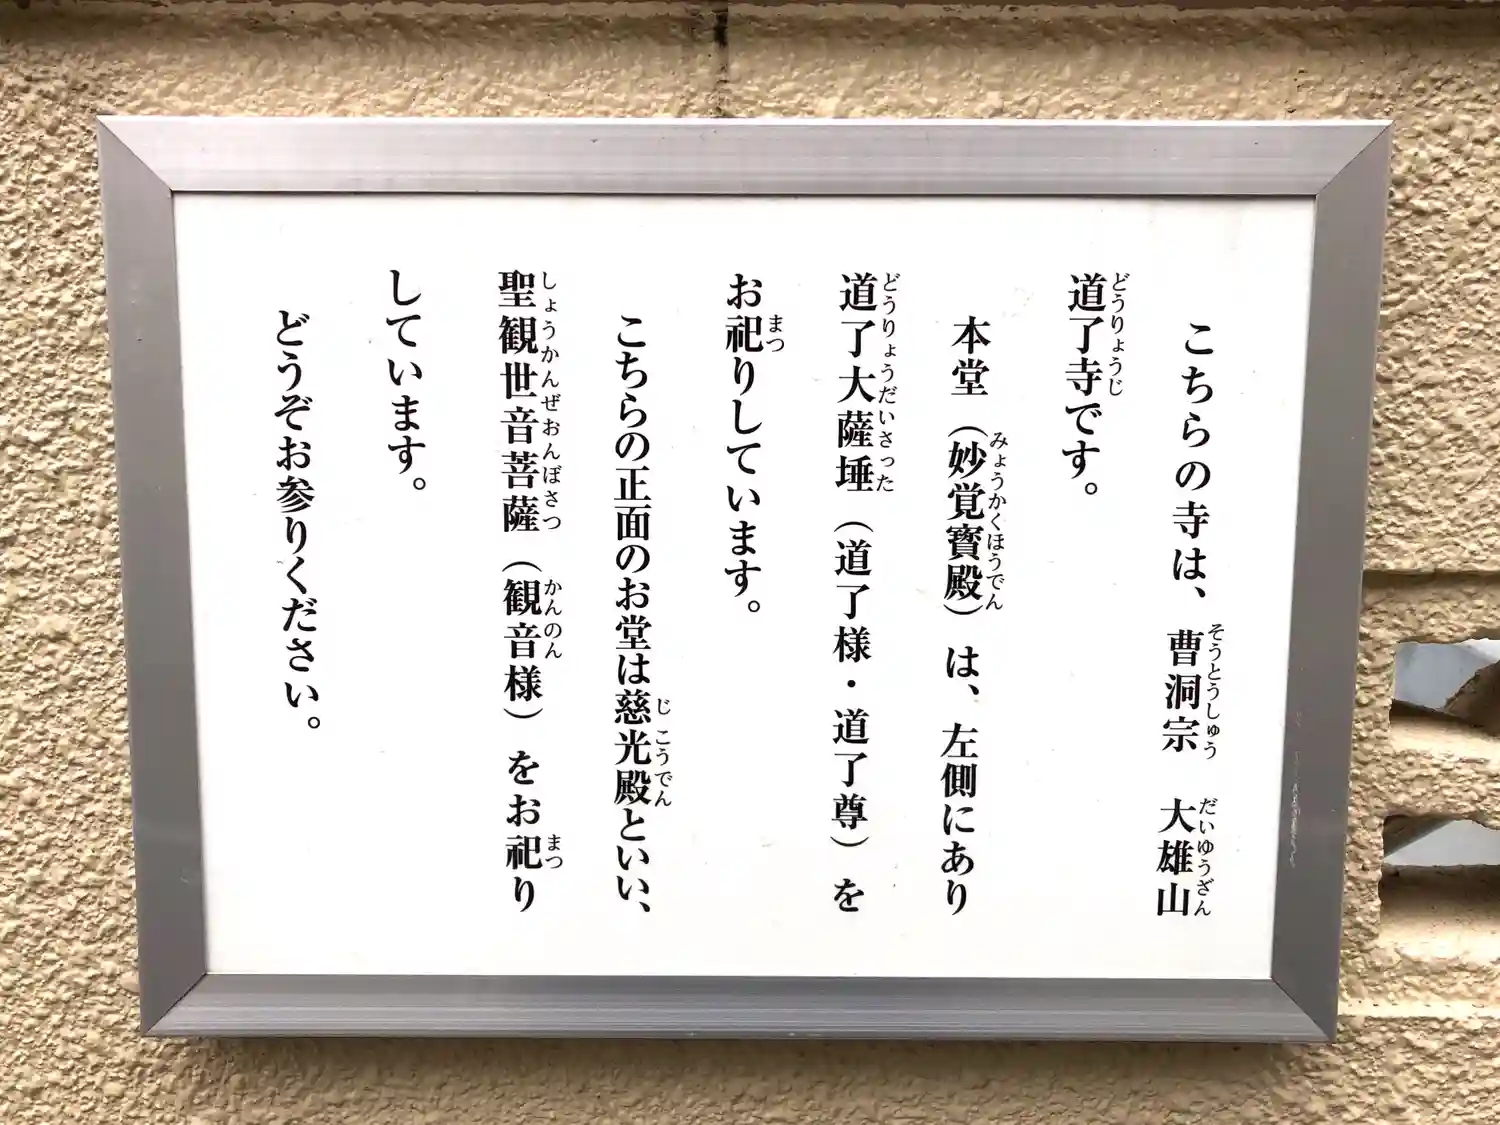 こちらの寺は、曹洞宗　大雄山
そうとうしゅう　だいゆうざん
道了寺です。
どうりょうじ
本堂（妙覚寳殿）は、左側にあり
みょうかくほうでん
道了大薩埵（道了様・道了尊）を
どうりょうだいさった
お祀りしています。
まつ
こちらの正面のお堂は慈光殿といい、
じこうでん
聖観世音菩薩（観音様）をお祀り
しょうかんぜおんぼさつ　かんのん　まつ
しています。
どうぞお参りください。